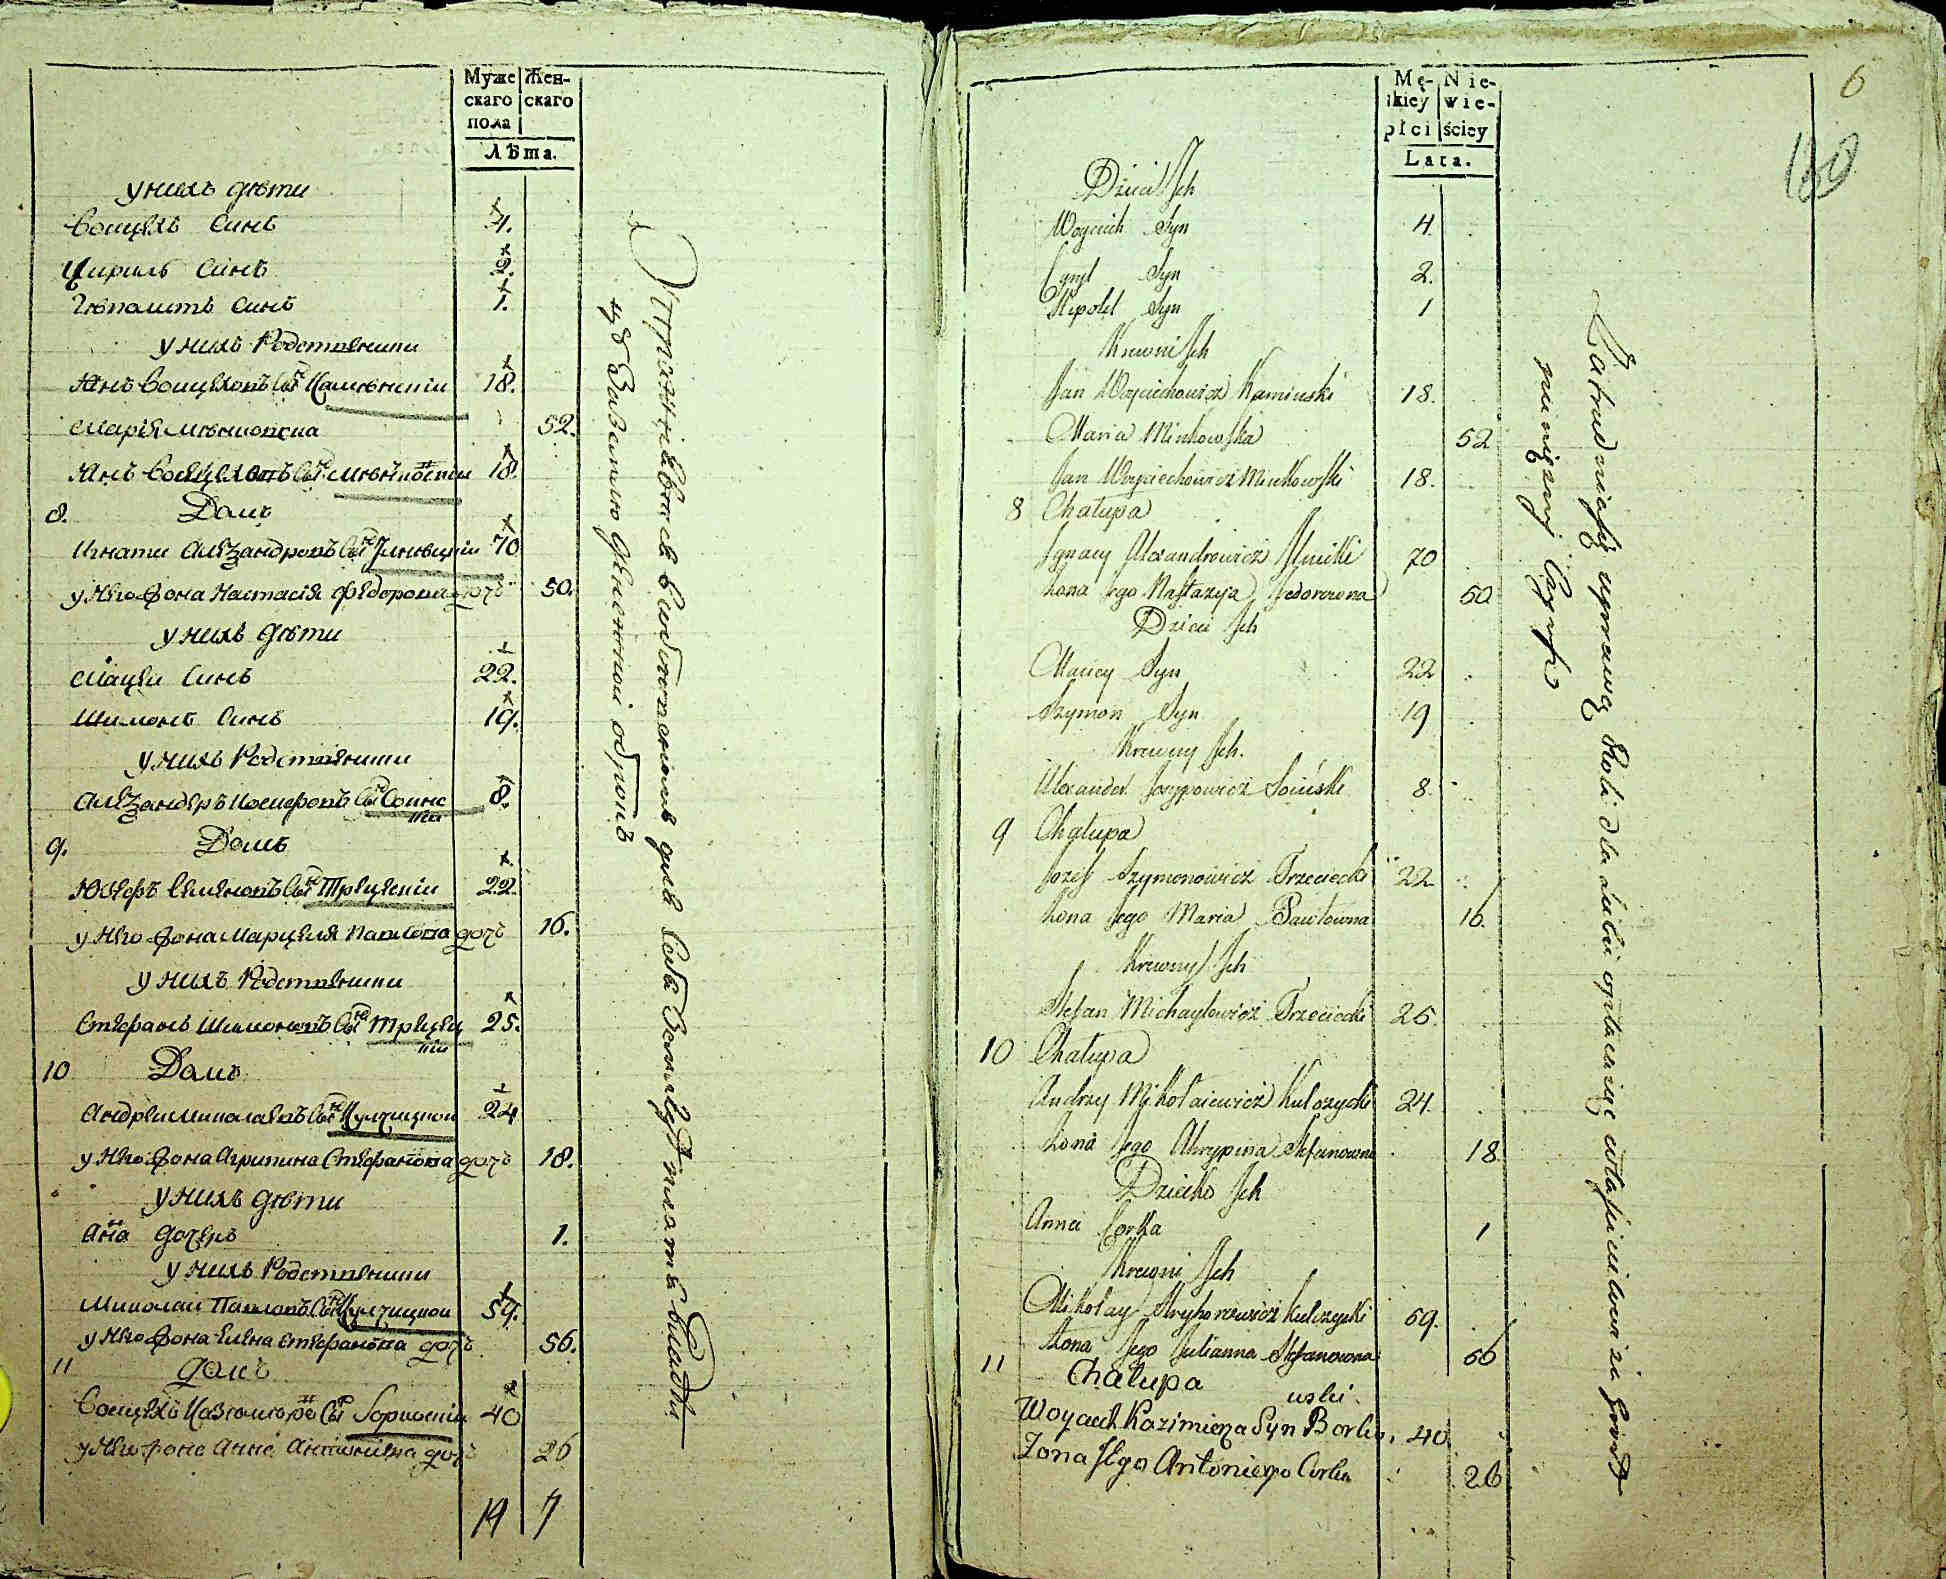 Муже
скаго
пола
Жен-
скаго
Лѣта.
у нихъ дѣти
Войцехъ Синъ 4.
Цирилъ Синъ 2.
Гѣполитъ Синъ 1.
у нихъ Родственники
Янъ Войцеховъ Сы͠нъ Каменскіи 18.
Марія 52.
Янъ Войцеховъ Сы͠нъ 18.
8. Домъ
Игнати Алеѯандровъ Сы͠нъ 70
у Него жона Настасія Федорова дочъ 50.
у нихъ дѣти
Мацеи Синъ 22.
Шимонъ Синъ 19.
у нихъ Родственники
Алеѯандеръ Иосифовъ Сы͠нъ Соинс
кіи 8.
9. Домъ
Юзефъ Семеновъ Сы͠нъ Трецескіи 22.
у Него жона Марцеля Павлова дочъ 16.
у нихъ Родственники
Стефанъ Шимоновъ Сы͠нъ Трецец
кіи 25.
10 Домъ
Андреи Миколаевъ Сы͠нъ Кулчицкои 24
у Него жона Агрипина Стефанова дочъ 18.
у нихъ дѣти
Анна дочеръ 1.
у нихъ Родственники
Миколаи Павловъ Сы͠нъ Кулчицкои 59.
у Него жона Елена Стефанова дочъ 56.
11 домъ
Войцехъ Казимиров Сы͠нъ Горковскіи 40
у Него жона Анна Антонивна дочъ 26
19 7
Упражняются в работаніи для себя земли, платя владѣл
цу Завелтю денежной оброкъ
6
Mę-
skiey
płci
Nie-
wie-
ściey
Lata.
Dzieci Ich
Woyciech Syn 4
Cyryl Syn 2.
Hipolit Syn 1
Krewni Ich
Jan Woyciechowicz Kaminski 18.
Maria Minkowska 52
Jan Woyciechowicz Minkowski 18.
8 Chałupa
Ignacy Alexandrowicz Ilnicki 70
Żona Jego Nastazyia Fedorowna 50
Dzieci Ich
Maciey Syn 22
Szymon Syn 19
Krewny Ich.
Alexander Jozypowicz Soiński 8.
9 Chałupa
Jozef Szymonowicz Trzeciecki 22
Żona Jego Maria Pawłowna 16.
Krewny Ich
Stefan Michayłowicz Trzeciecki 25.
10 Chałupa
Andrzy Mikołaiewicz Kulczycki 24.
Żona Jego Akrypina Stefanowna 18
Dziecko Ich
Anna Corka 1
Krewni Ich
Mikołay Hryhorewicz Kulczycki 59.
Żona Jego Julianna Stefanowna 56
11 Chałupa
uski
Woyciech Kazimierza Syn Borko, 40
Żona Jego Antoniego Corka 26
Zatrudniaią się uprawą Roli dla siebie opłacaiąc właścicielowi za grunt
pieniężny Czynsz